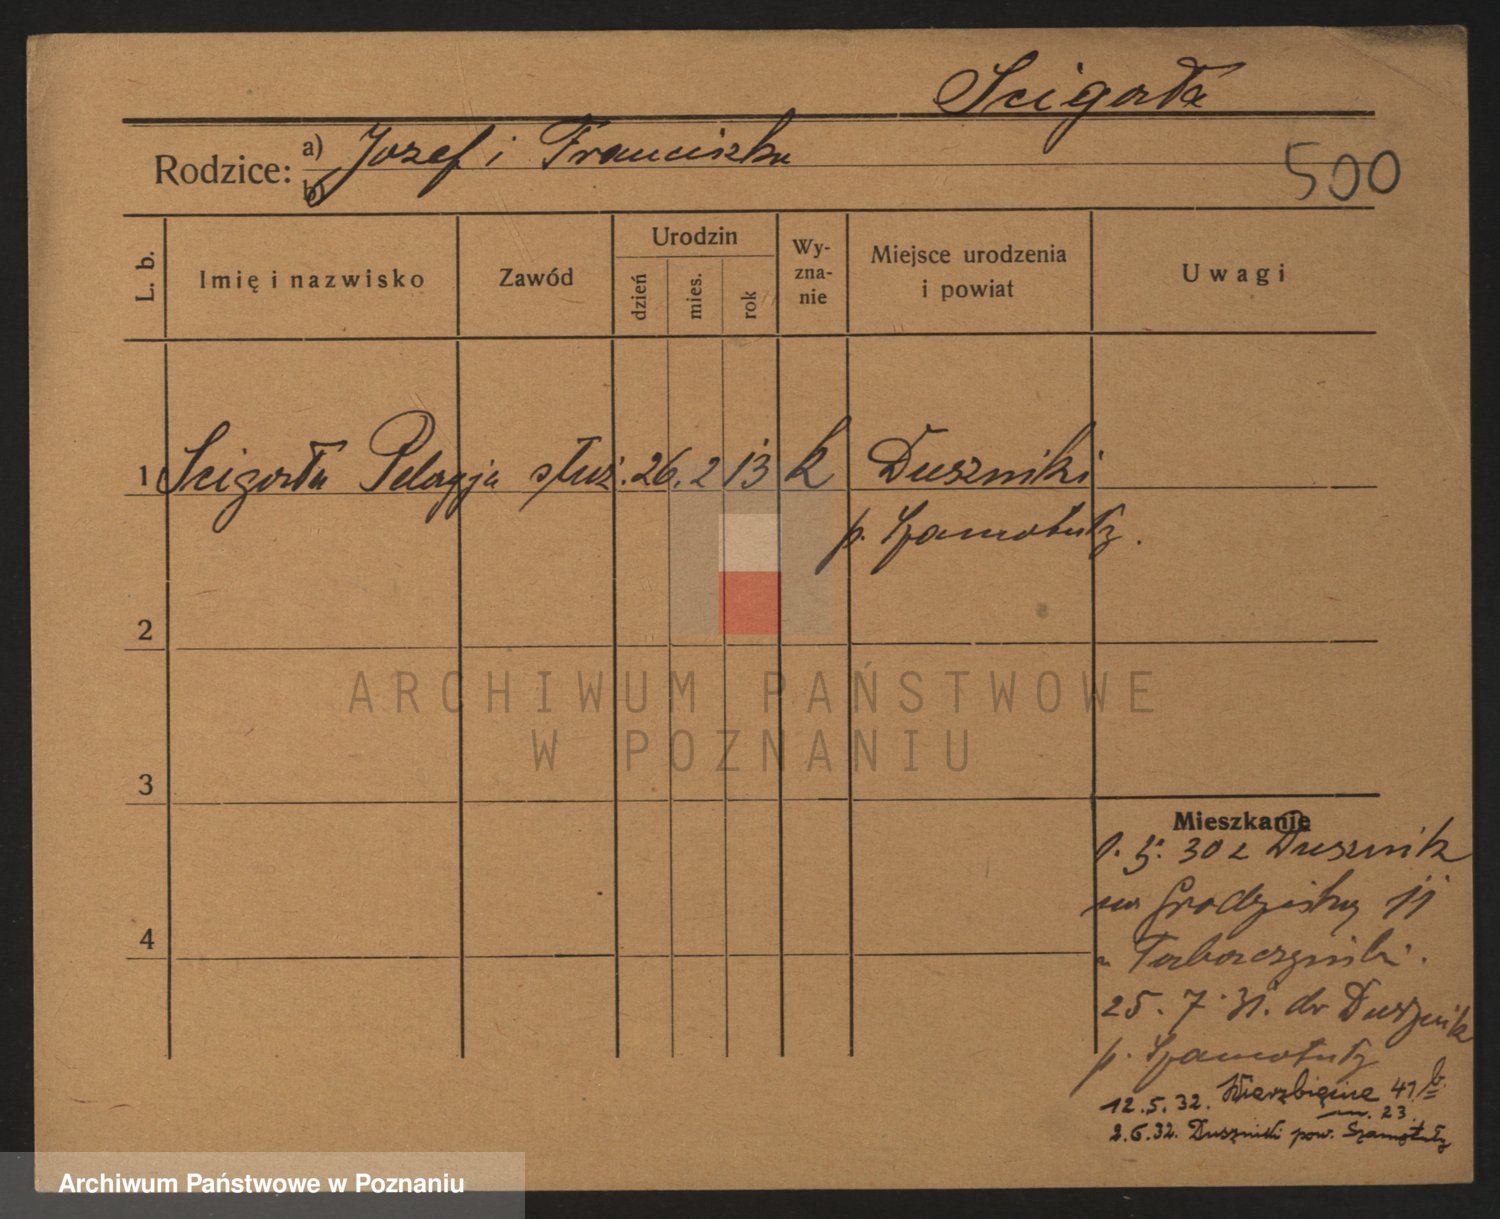 Scigorła
Rodzice: a) Jozef i Franciszka
b)
500
L. b.
Imię i nazwisko
Zawód
Urodzin
dzień
mies.
rok
Wy-
zna-
nie
Miejsce urodzenia
i powiat
Uwagi
1 Scigorła Pelagja służ. 26. 2 13 k Duszniki
p. Szamotuły.
2
3
4
Mieszkanie
5. 30 z Dusznik
na Grodziską 11
25. 7. 31. do Dusznik
p. Szamotuły
12. 5. 32. Wierzbięcice 41/b
m. 23.
2. 6. 32. Duszniki pow. Szamotuły
ARCHIWUM PAŃSTWOWE
W POZNANIU
Archiwum Państwowe w Poznaniu